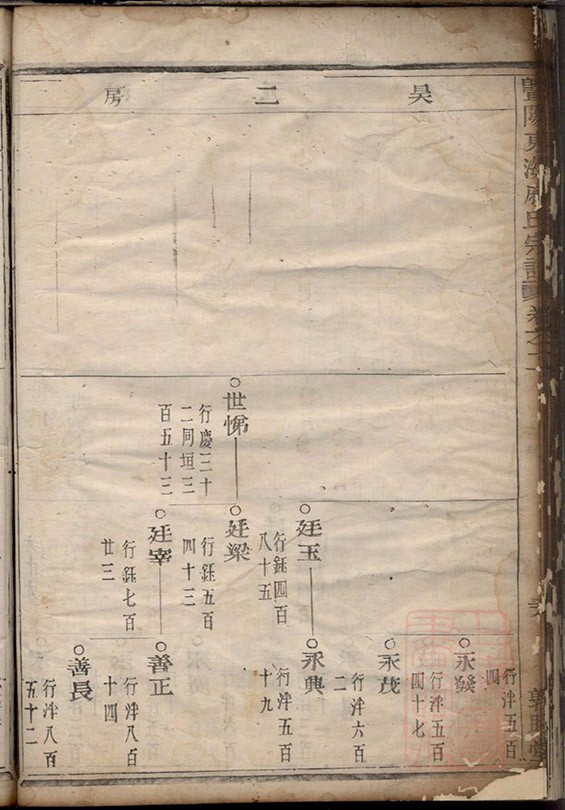 昊二房
世悌
行慶三十
二同垣三
百五十三
廷玉
行鈺四百
八十五
廷梁
行鈺五百
四十三
廷宰
行鈺七百
廿三
永發
行泮五百
四
永茂
行泮五百
四十七
永興
行泮六百
二
行泮五百
十九
善正
行泮八百
十四
善良
行泮八百
五十二
東
氏宗譜
卷之二